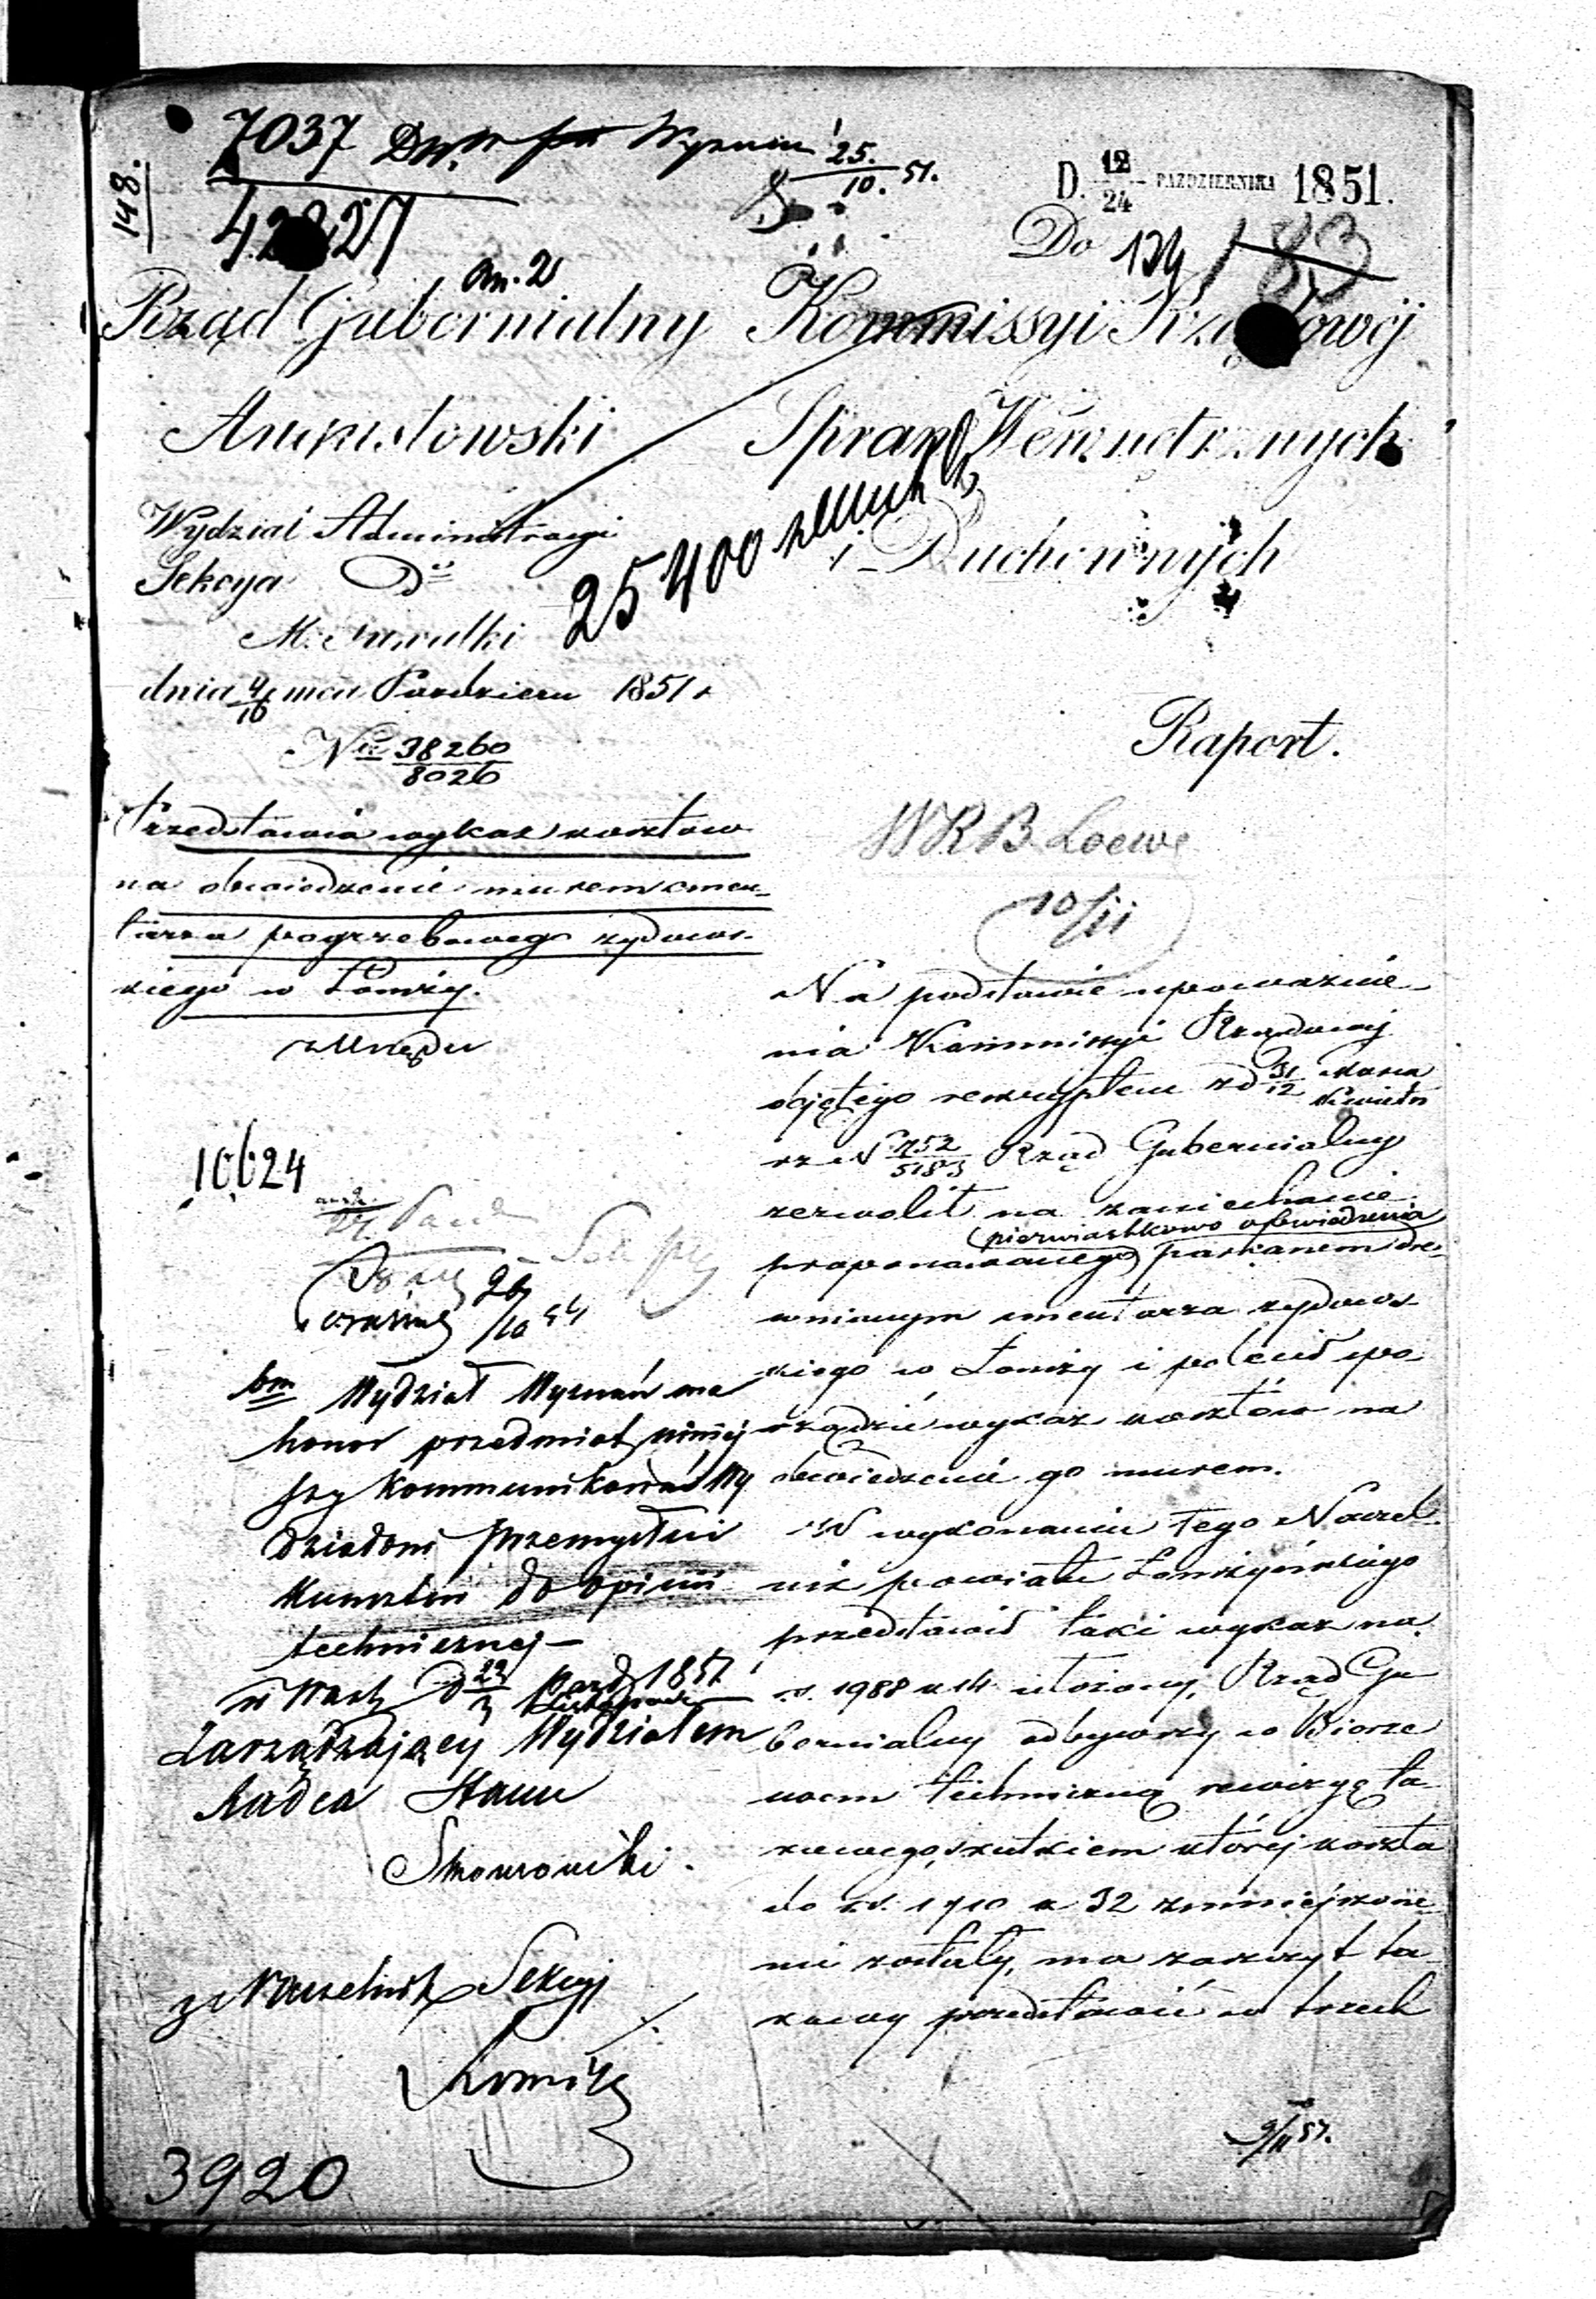 148.
7037
25.
10. 51.
D. 12/24 PAZDZIERNIKA 1851.
Do 134 183
an. 2
Rząd Gubernialny
Augustowski
Kommissyi Rządowéj
Spraw Wewnętrznych
i Duchownych
Wydział Administracyi
Sekcya
M. Suwałki
dnia 4/16 mca Październ 1851 r
No 38260/8026
25400
Raport.
Przedstawia wykaz kosztow
na obwiedzenie murem cmen-
tarza pogrzebowego żydows-
kiego w Łomży.
z Urzędu
WRB Loewe
10/11
Na podstawie upoważnie-
nia Kommissyi Rządowej
objętego reskryptem z d 31/12 Marca/Kwietn
rz N 752/5183 Rząd Gubernialny
zezwolił na zaniechanie
(pierwiastkowo obwiedzenia
proponowanego) parkanem dre-
wnianym cmentarza żydows-
kiego w Łomży i polecił spo-
rządzić wykaz kosztów na
obwiedzenie go murem.
W wykonaniu tego Naczel-
nik powiatu Łomżyńskiego
przedstawił taki wykaz na
rs. 1988 k 14 ułożony, Rząd Gu-
bernialny odbywszy w Biorze
swem techniczną rewizyę ta-
kowego, skutkiem której koszta
do rs. 1910 k 32 zmniejszone-
mi zostały, ma zaszczyt ta-
kowy przedstawić w trzech
10624
26/10 51
Wydział Wyznań ma
honor przedmiot niniej
szy kommunikować Wy
działowi Przemysłu i
Kunsztów do opinii
technicznej —
w Warsz d 22/3 Paźd/Listopada 1851
Zarządzający Wydziałem
Radca Stanu
z Naczelnik Sekcyi
9/11 51.
3920